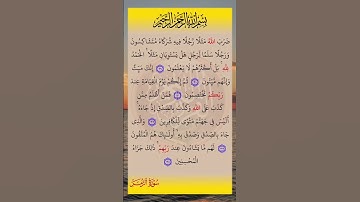 بسم الله الرحمن الرحيم
ضَرَبَ اللَّهُ مَثَلًا رَجُلًا فِيهِ شُرَكَاءُ مُتَشَاكِسُونَ
وَرَجُلًا سَلَمًا لِرَجُلٍ هَلْ يَسْتَوِيَانِ مَثَلًا ۚ الْحَمْدُ
لِلَّهِ ۚ بَلْ أَكْثَرُهُمْ لَا يَعْلَمُونَ إِنَّكَ مَيِّتٌ
وَإِنَّهُمْ مَيِّتُونَ ثُمَّ إِنَّكُمْ يَوْمَ الْقِيَامَةِ عِنْدَ
رَبِّكُمْ تَخْتَصِمُونَ فَمَنْ أَظْلَمُ مِمَّنْ
كَذَبَ عَلَى اللَّهِ وَكَذَّبَ بِالصِّدْقِ إِذْ جَاءَهُ ۚ
أَلَيْسَ فِي جَهَنَّمَ مَثْوًى لِلْكَافِرِينَ وَالَّذِي
جَاءَ بِالصِّدْقِ وَصَدَّقَ بِهِ ۙ أُولَٰئِكَ هُمُ الْمُتَّقُونَ
لَهُمْ مَا يَشَاءُونَ عِنْدَ رَبِّهِمْ ۚ ذَٰلِكَ جَزَاءُ
الْمُحْسِنِينَ
سورة الزمر